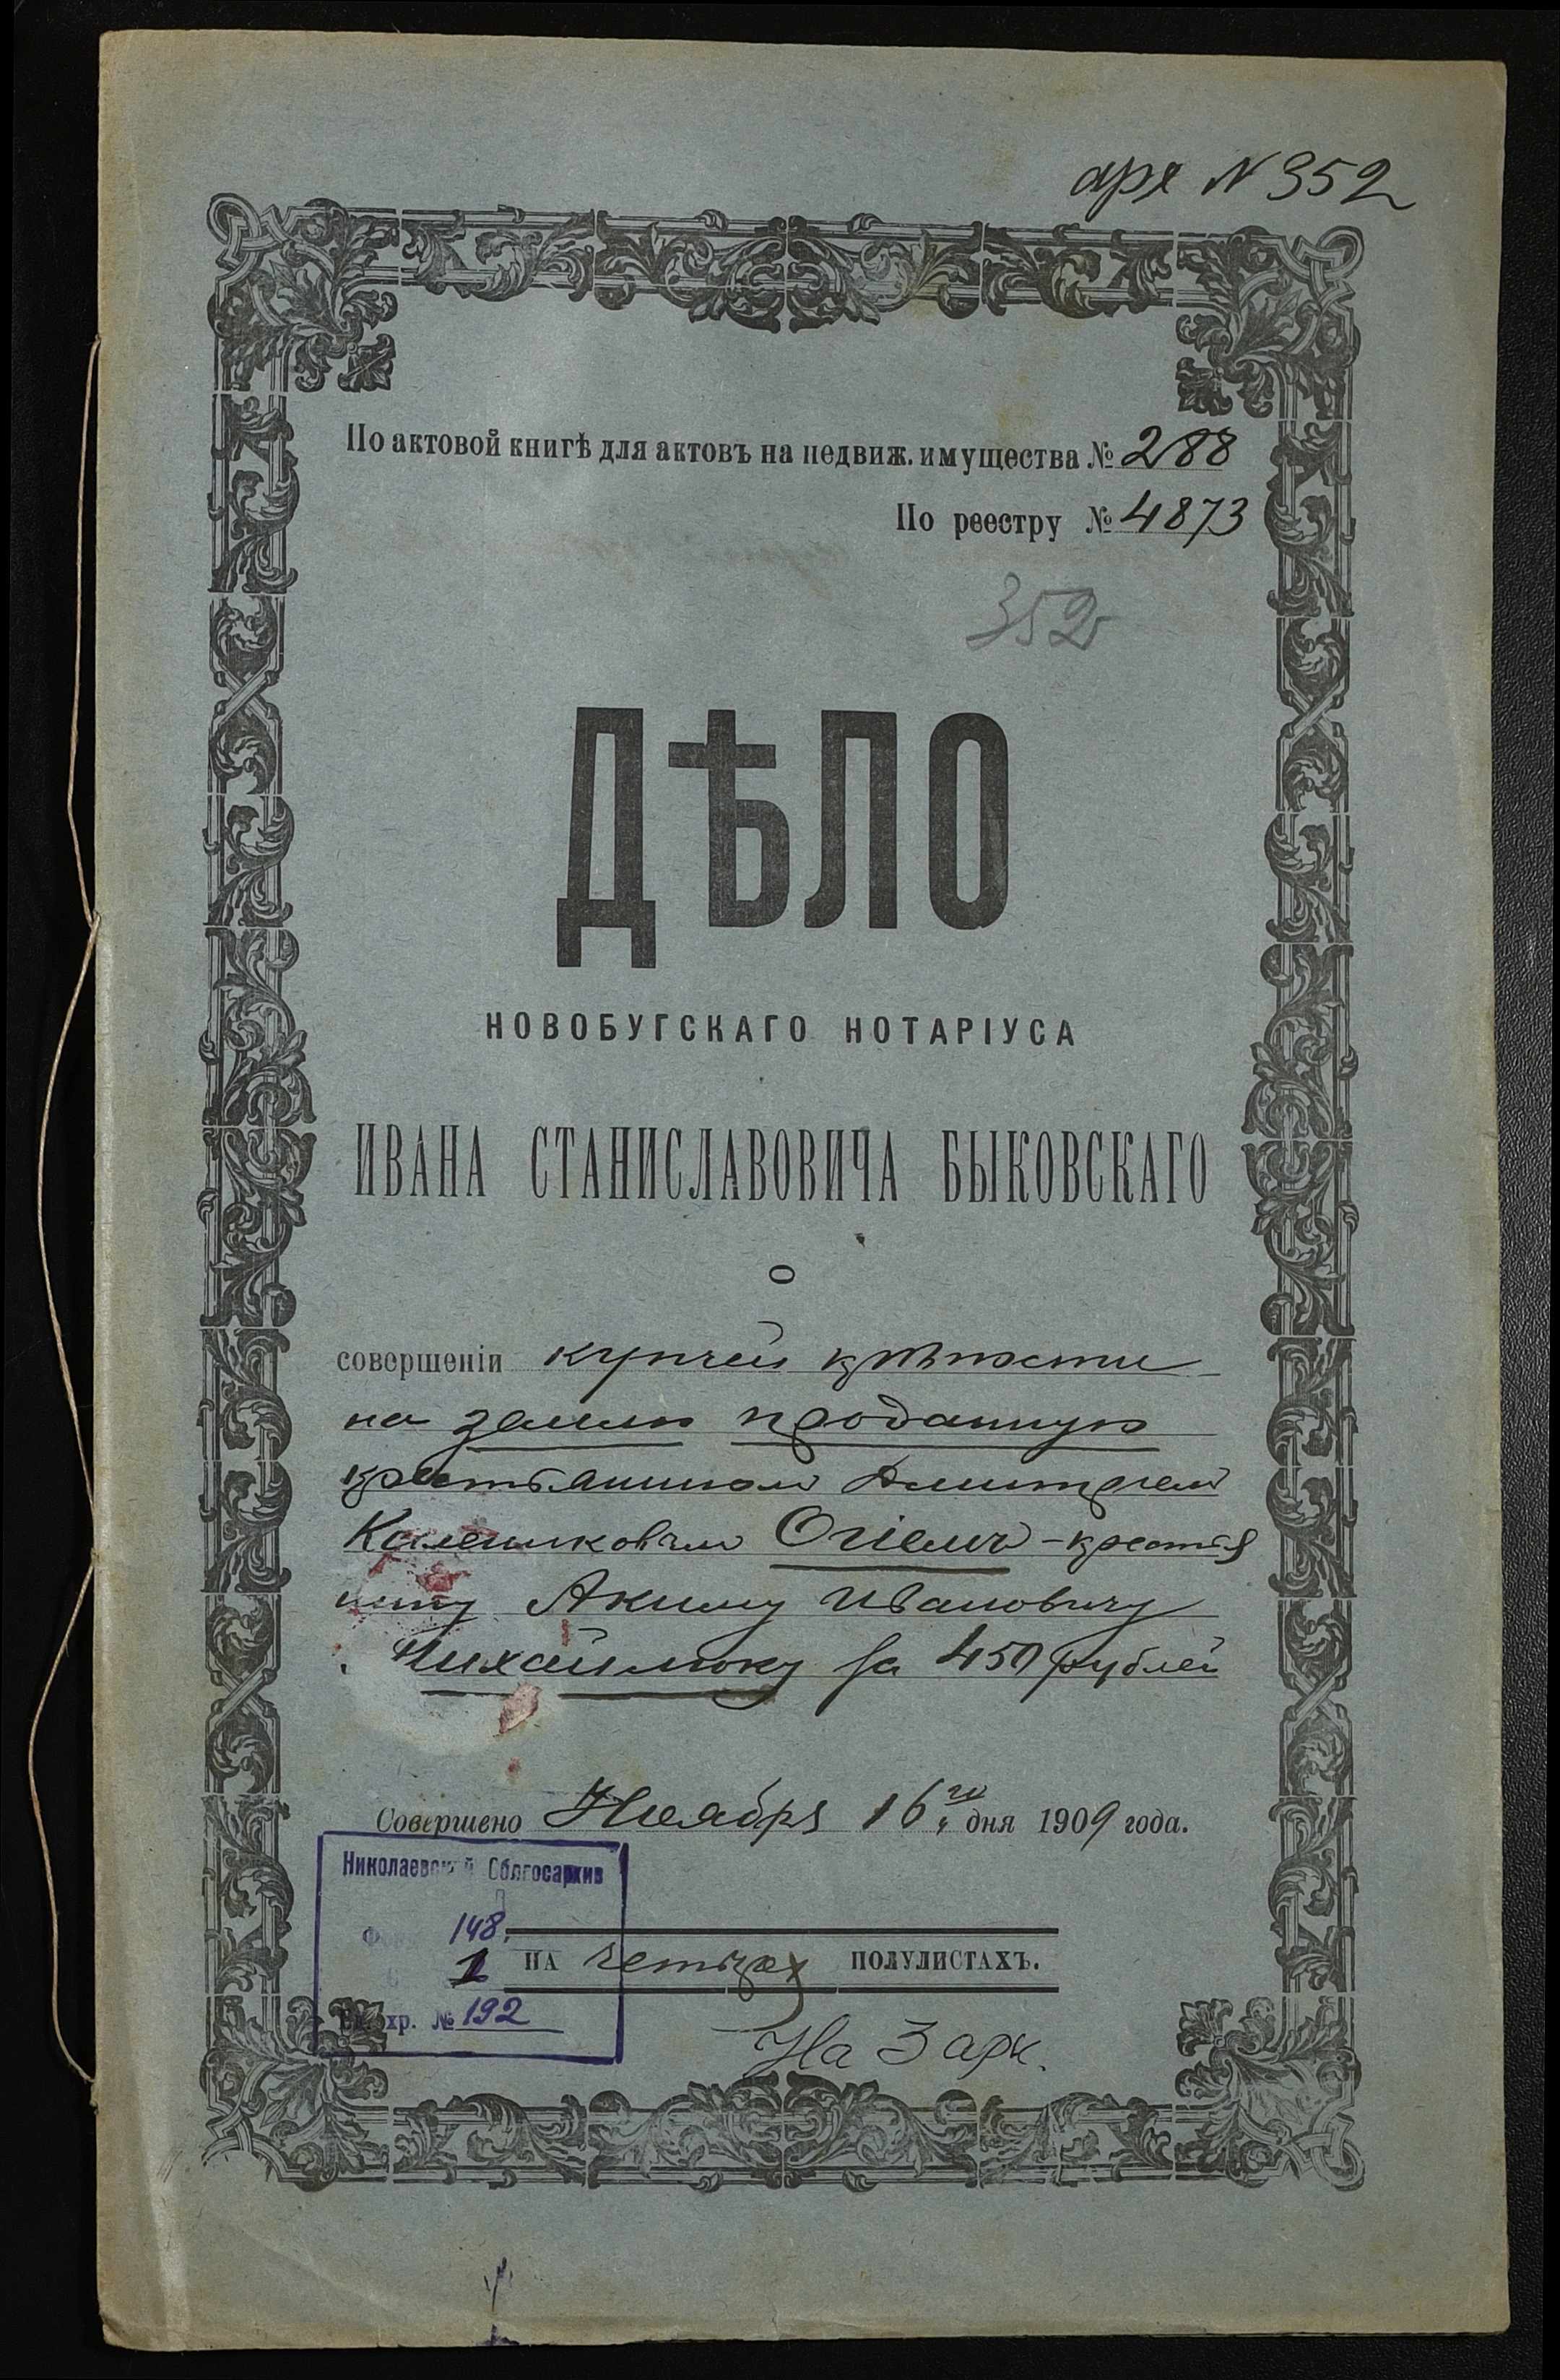 арх N 352
По актовой книгѣ для актовъ на недвиж. имущества № 288
По реестру № 4873
352
ДѢЛО
НОВОБУГСКАГО НОТАРІУСА
ИВАНА СТАНИСЛАВОВИЧА БЫКОВСКАГО
О
совершеніи купчей крѣпости
на землю проданную
крестьяниномъ Дмитріемъ
Огіемъ - крестья
нину Акиму Ивановичу
за 450 рублей
Совершено Ноября 16го дня 1909 года.
Николаевский Облгосархив
148
1
НА четырех ПОЛУЛИСТАХЪ.
хр. № 192
На 3 арк.